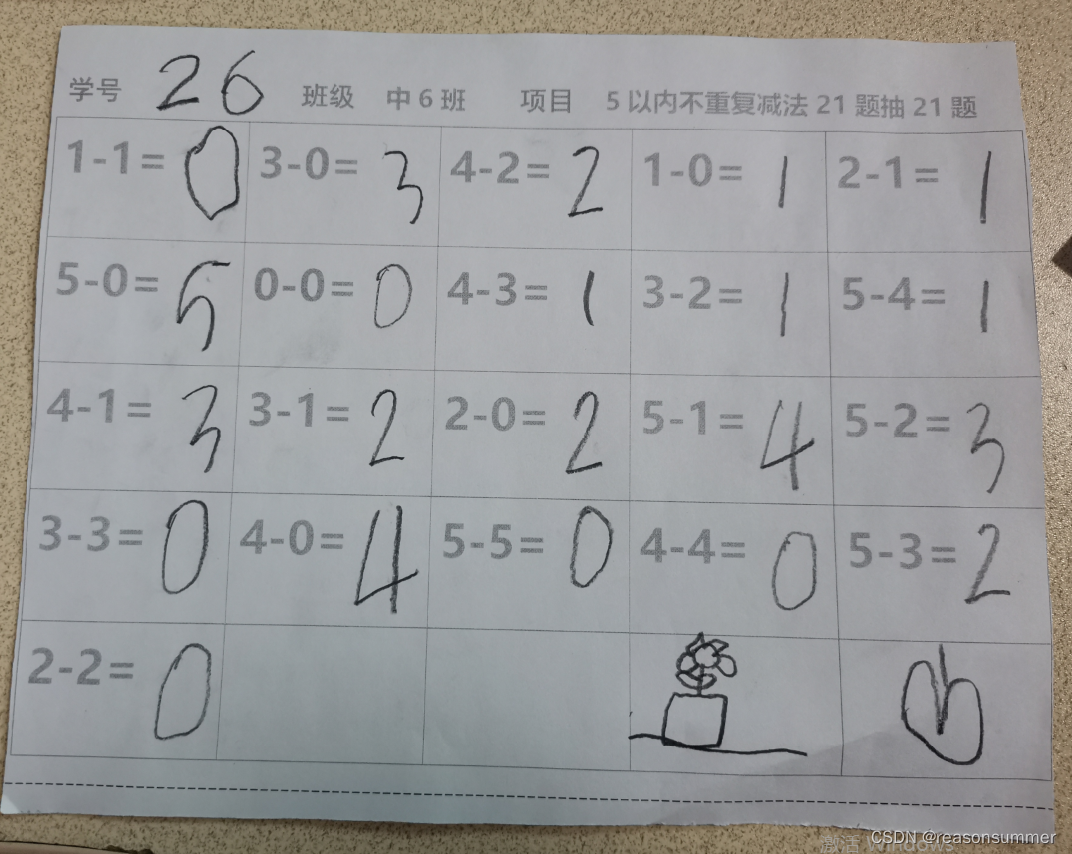 学号 26 班级 中6班 项目 5以内不重复减法21题抽21题
1-1= 0 3-0= 3 4-2= 2 1-0= 1 2-1= 1
5-0= 5 0-0= 0 4-3= 1 3-2= 1 5-4= 1
4-1= 3 3-1= 2 2-0= 2 5-1= 4 5-2= 3
3-3= 0 4-0= 4 5-5= 0 4-4= 0 5-3= 2
2-2= 0
激活 Windows
CSDN @reasonsummer